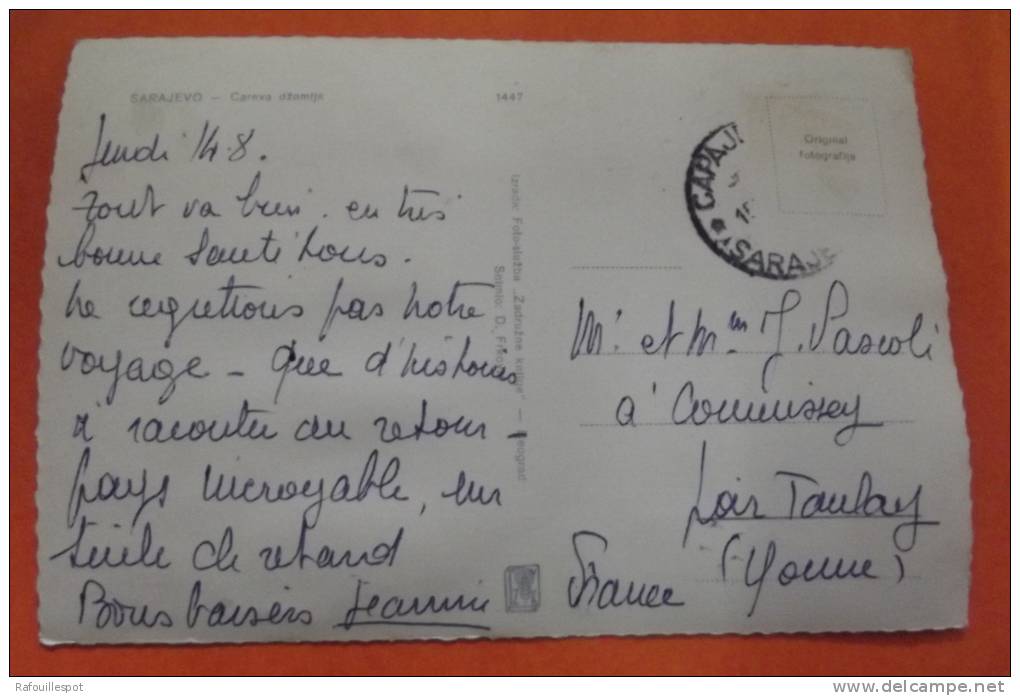 SARAJEVO – Careva džamija
1447
Original
fotografija
SARAJE
Jeudi 14.8.
Tout va bien. en très
bonne santé tous.
ne regrettons pas notre
voyage – que d'histoires
à raconter au retour –
pays incroyable, un
siècle de retard
Bons baisers Jeannine
Izrada: Foto-služba „Zadružne knjige" — Beograd
Snimio: D.
Mr et Mme J. Pascoli
à Commissey
par Tanlay
(Yonne)
France
Rafouillespot
www.delcampe.net